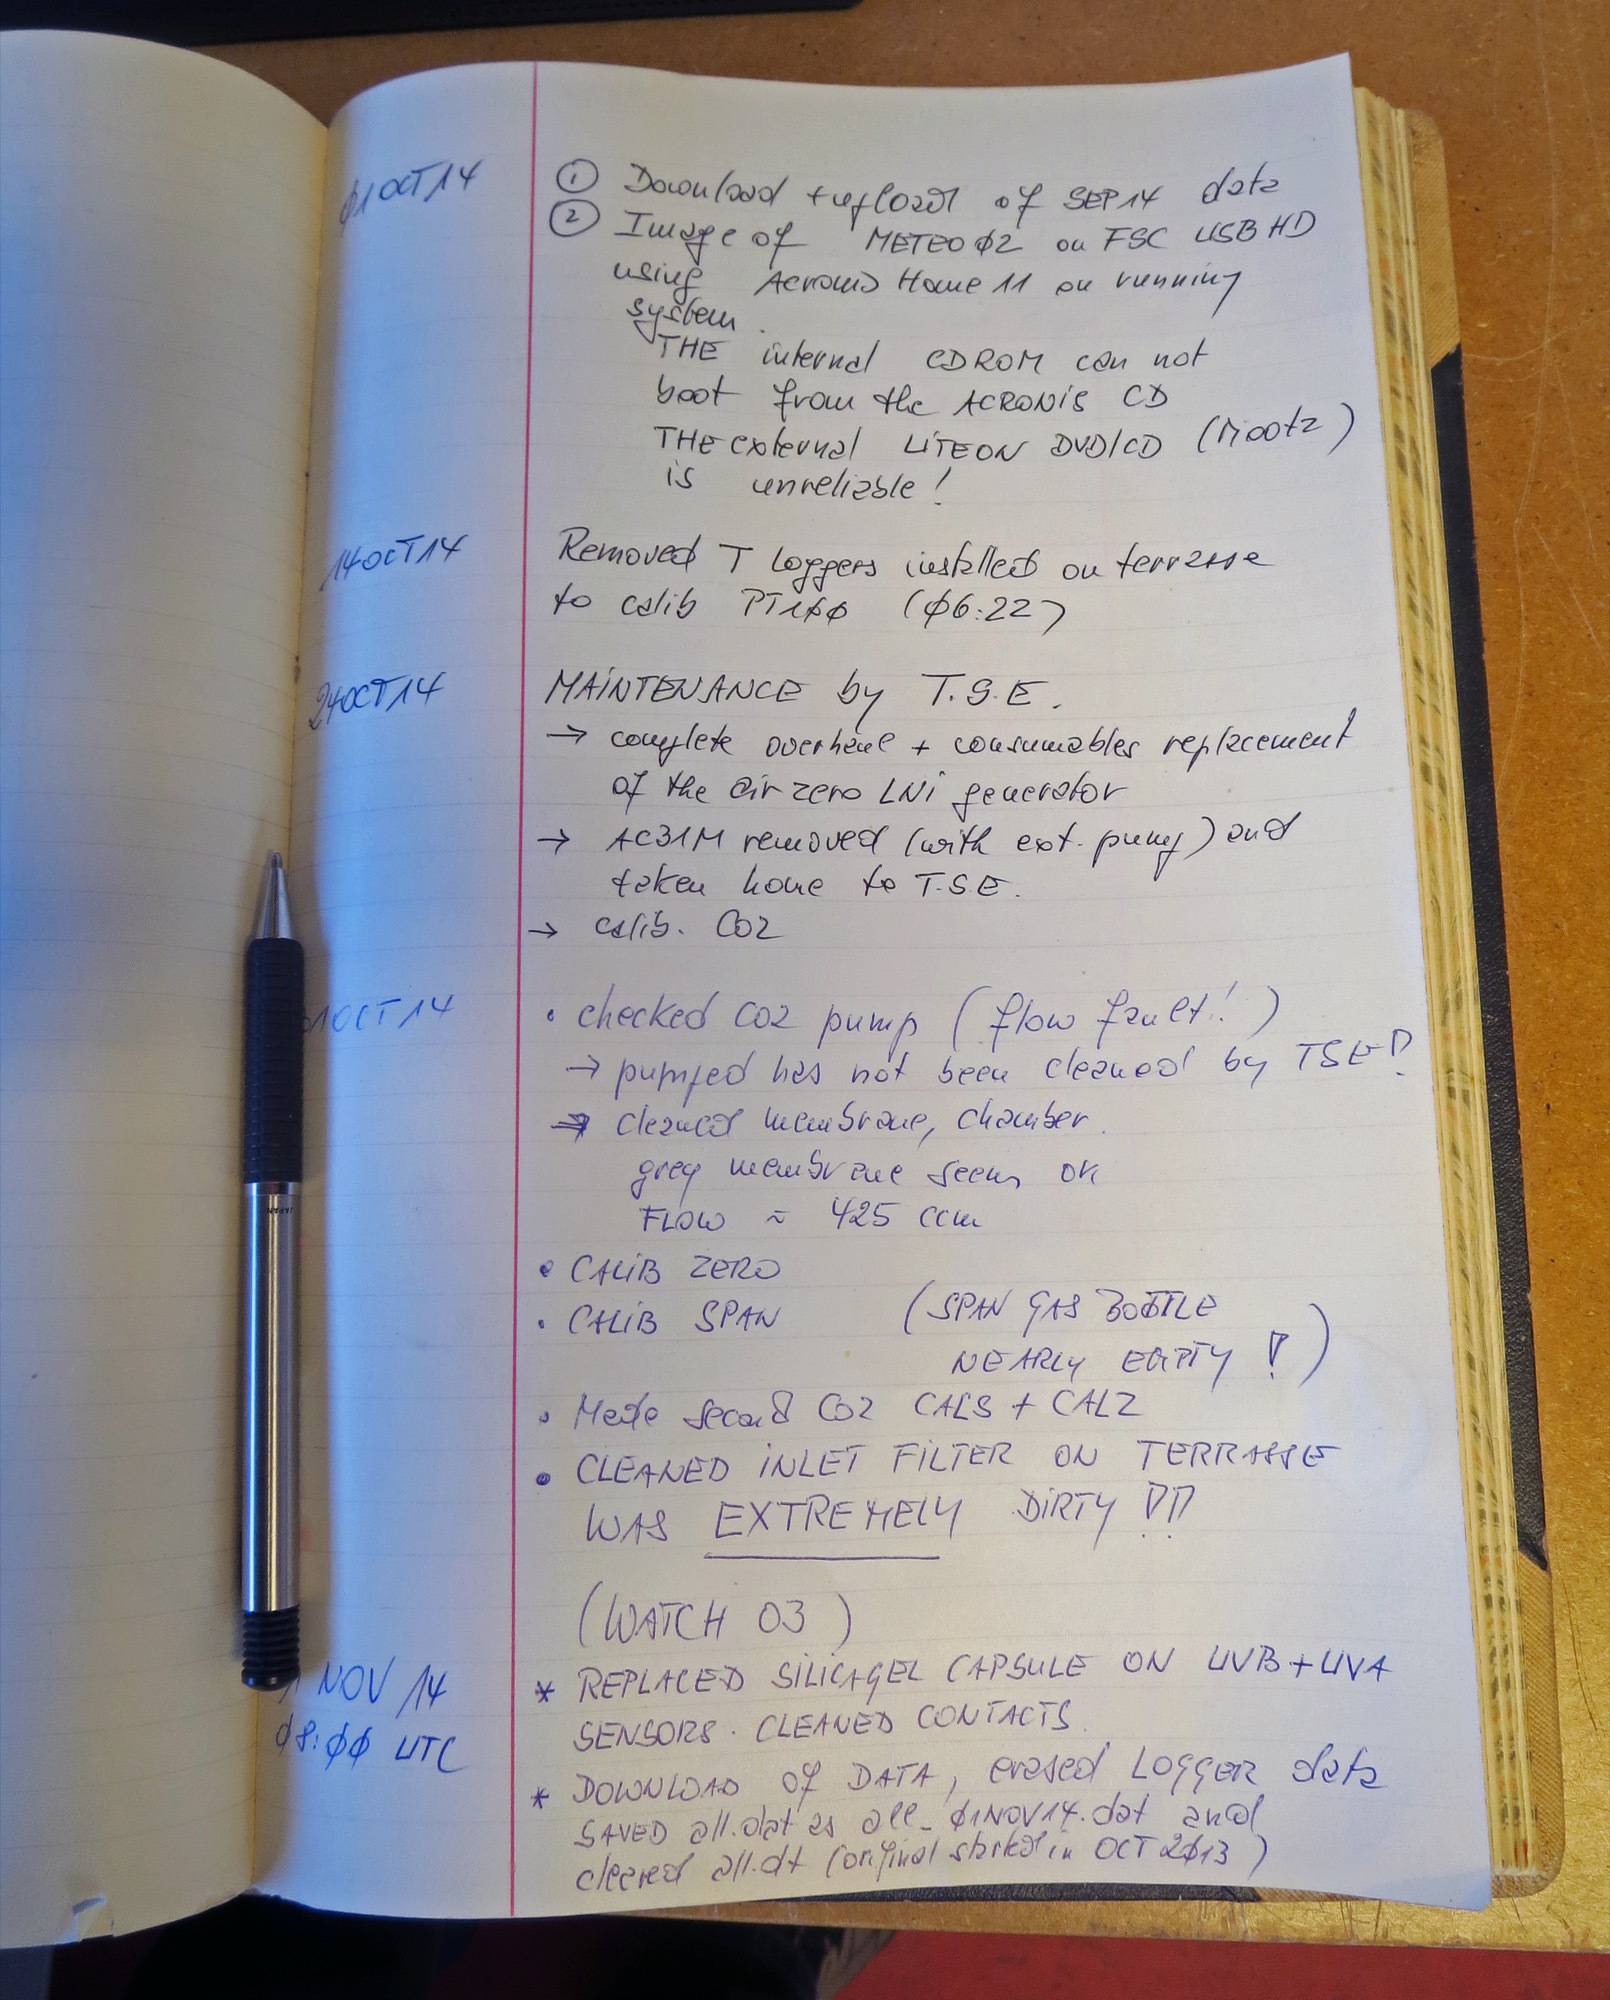 Ø1OCT14 ① Download + upload of SEP14 data
② Image of METEOØ2 on FSC USB HD
using Acronis Home 11 on running
system.
THE internal CDROM can not
boot from the ACRONIS CD
THE external LITEON DVD/CD (Mootz)
is unreliable!
14OCT14 Removed T loggers installed on terrasse
to calib PT1ØØ (Ø6:22)
24OCT14 MAINTENANCE by T.S.E.
→ complete overhaul + consumables replacement
of the air zero LNI generator
→ AC31M removed (with ext. pump) and
taken home to T.S.E.
→ calib. CO2
31OCT14 • checked CO2 pump (flow fault!)
→ pumped has not been cleaned by TSE!
→ cleaned membrane, chamber.
grey membrane seems OK
FLOW ≈ 425 ccm
• CALIB ZERO
• CALIB SPAN (SPAN GAS BOTTLE
NEARLY EMPTY!)
• Made second CO2 CALS + CALZ
• CLEANED INLET FILTER ON TERRASSE
WAS EXTREMELY DIRTY !!!
(WATCH O3)
1 NOV 14 * REPLACED SILICAGEL CAPSULE ON UVB + UVA
Ø8:ØØ UTC SENSORS. CLEANED CONTACTS.
* DOWNLOAD of DATA, erased LOGGER data
SAVED all.dat as all_Ø1NOV14.dat and
cleared all.dt (original started in OCT 2Ø13)
JAPAN